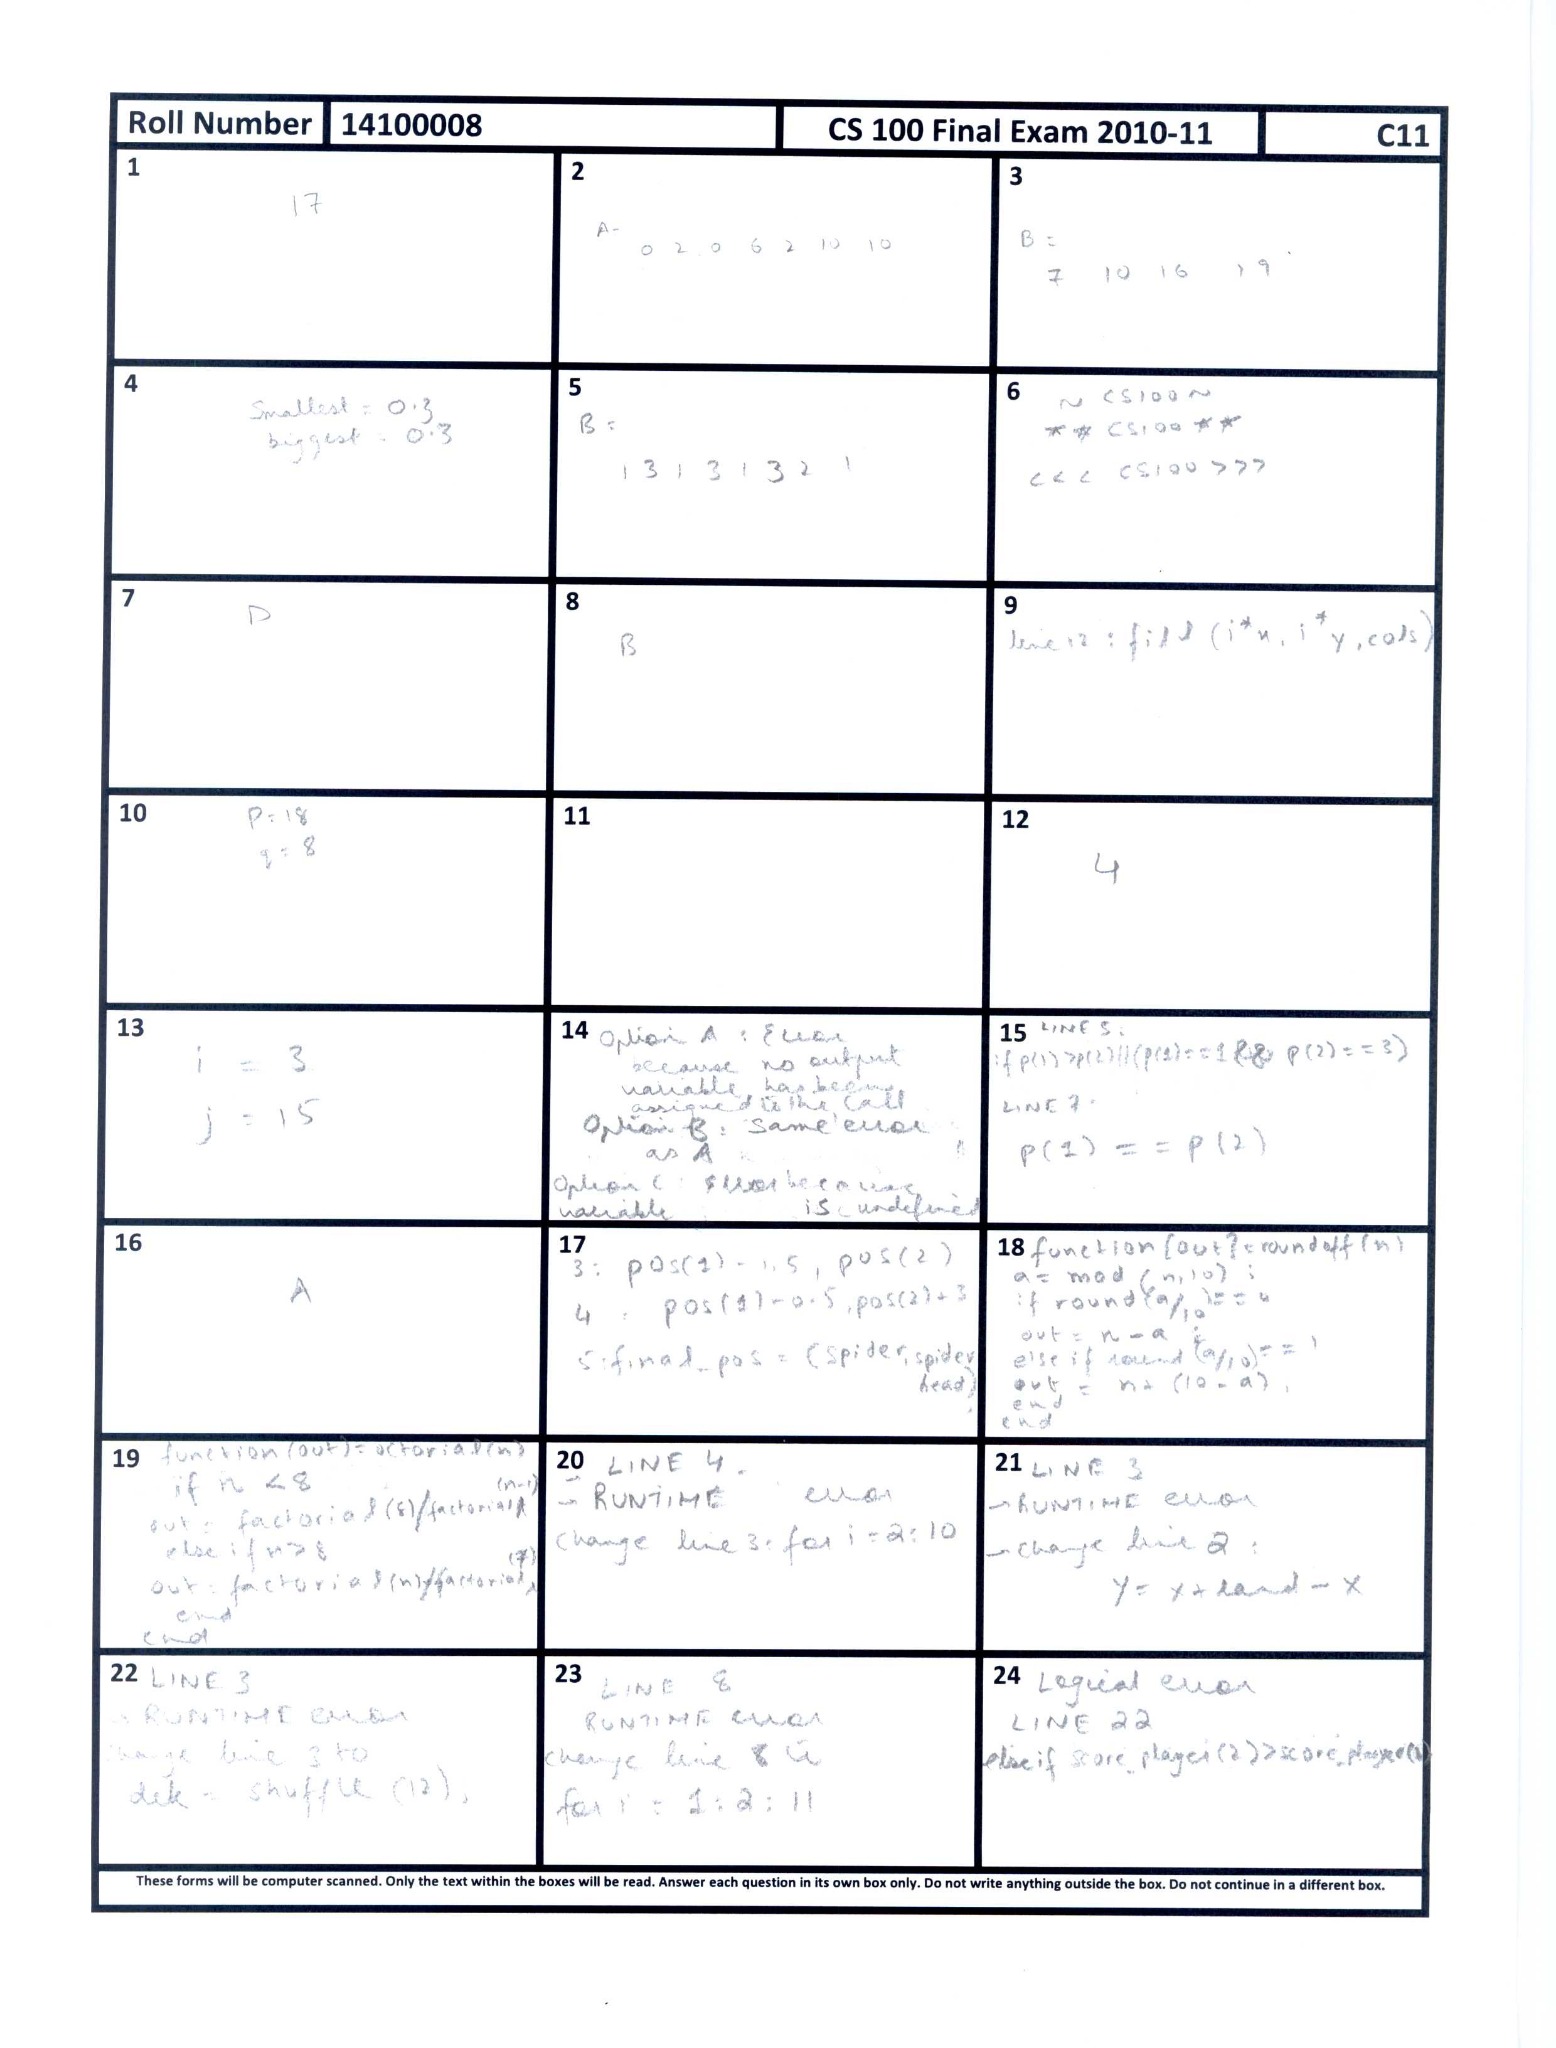 Roll Number 14100008 CS 100 Final Exam 2010-11 C11
1
17
2
A-
0 2 0 6 2 10 10
3
B =
7 10 16 19
4
Smallest = 0.3
biggest = 0.3
5
B =
1 3 1 3 1 3 2 1
6
~ CS100 ~
** CS100 **
<<< CS100 >>>
7
D
8
B
9
line 12 : fill (i*x, i*y, cols)
10
P = 18
q = 8
11
12
4
13
i = 3
j = 15
14 Option A : Error
because no output
variable has been
assigned to the call
Option B : Same error
as A
Option C : error because
variable is undefined
15 LINE 5:
if p(1)>p(2)||(p(1)==1 && p(2)==3)
LINE 7.
p(1) == p(2)
16
A
17
3: pos(1)-1.5, pos(2)
4 : pos(1)-0.5, pos(2)+3
5: final_pos = (spider, spider
head)
18 function [out]=roundoff(n)
a= mod (n,10) ;
if round(a/10)==0
out = n-a ;
else if round (a/10)==1
out = n+ (10-a) ,
end
end
19 function (out)= octorial(n)
if n <8
out = factorial(8)/factorial (n-1)
else if n>8
out = factorial(n)/factorial (7)
end
end
20 LINE 4.
- RUNTIME error
change line 3: for i=2:10
21 LINE 3
- RUNTIME error
- change line 2 :
Y = x + rand - x
22 LINE 3
- RUNTIME error
change line 3 to
dek = shuffle (12),
23 LINE 8
RUNTIME error
change line 8 to
for i = 1:2:11
24 Logical error
LINE 22
else if score_player(2)>score_player(1)
These forms will be computer scanned. Only the text within the boxes will be read. Answer each question in its own box only. Do not write anything outside the box. Do not continue in a different box.